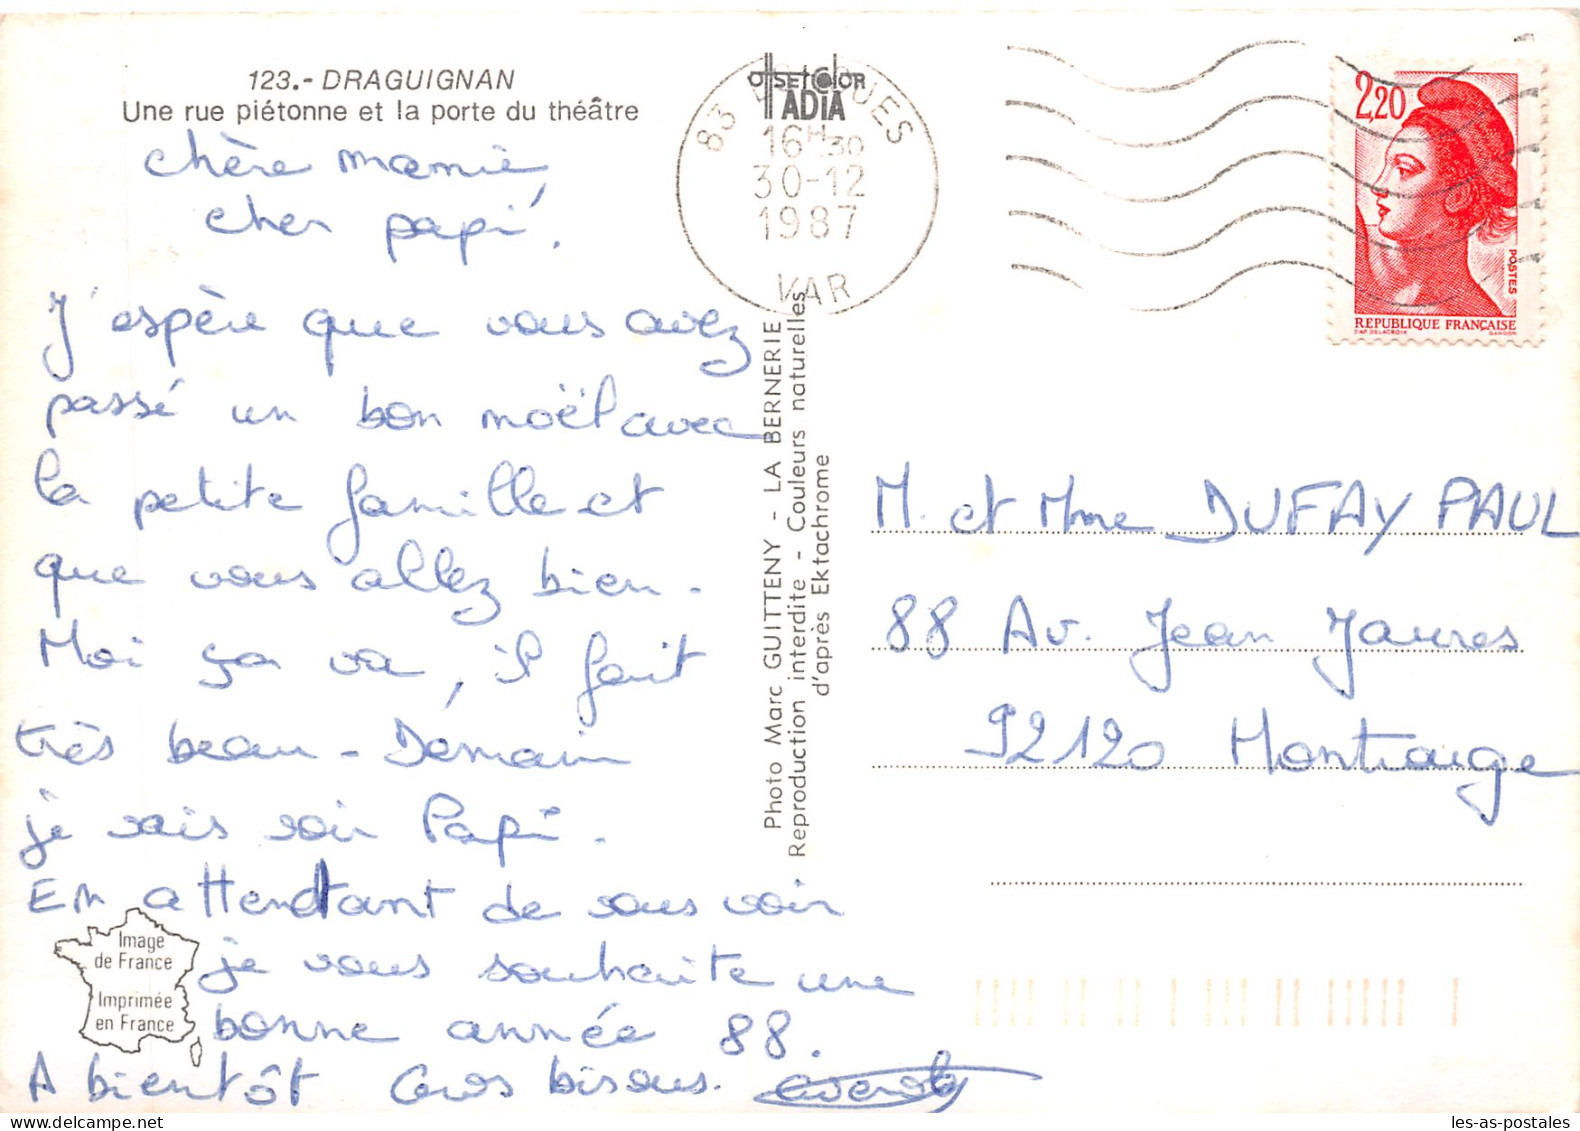 123.- DRAGUIGNAN
Une rue piétonne et la porte du théâtre
chère mamie,
cher papi.
J'espère que vous avez
passé un bon moël avec
la petite famille et
que vous allez bien.
Moi ça va, il fait
très beau - Démain
je vais voir Papi.
En attendant de vous voir
je vous souhaite une
bonne année 88.
A bientôt Gros bisous.
Image
de France
Imprimée
en France
OffsetColor
ADIA
83
16H30
30-12
1987
VAR
Photo Marc GUITTENY - LA BERNERIE
Reproduction interdite - Couleurs naturelles
d'après Ektachrome
2,20
POSTES
RÉPUBLIQUE FRANÇAISE
D'AP. DELACROIX GANDON
M. et Mme DUFAY PAUL
88 Av. Jean Jaures
92120 Montrouge
les-as-postales